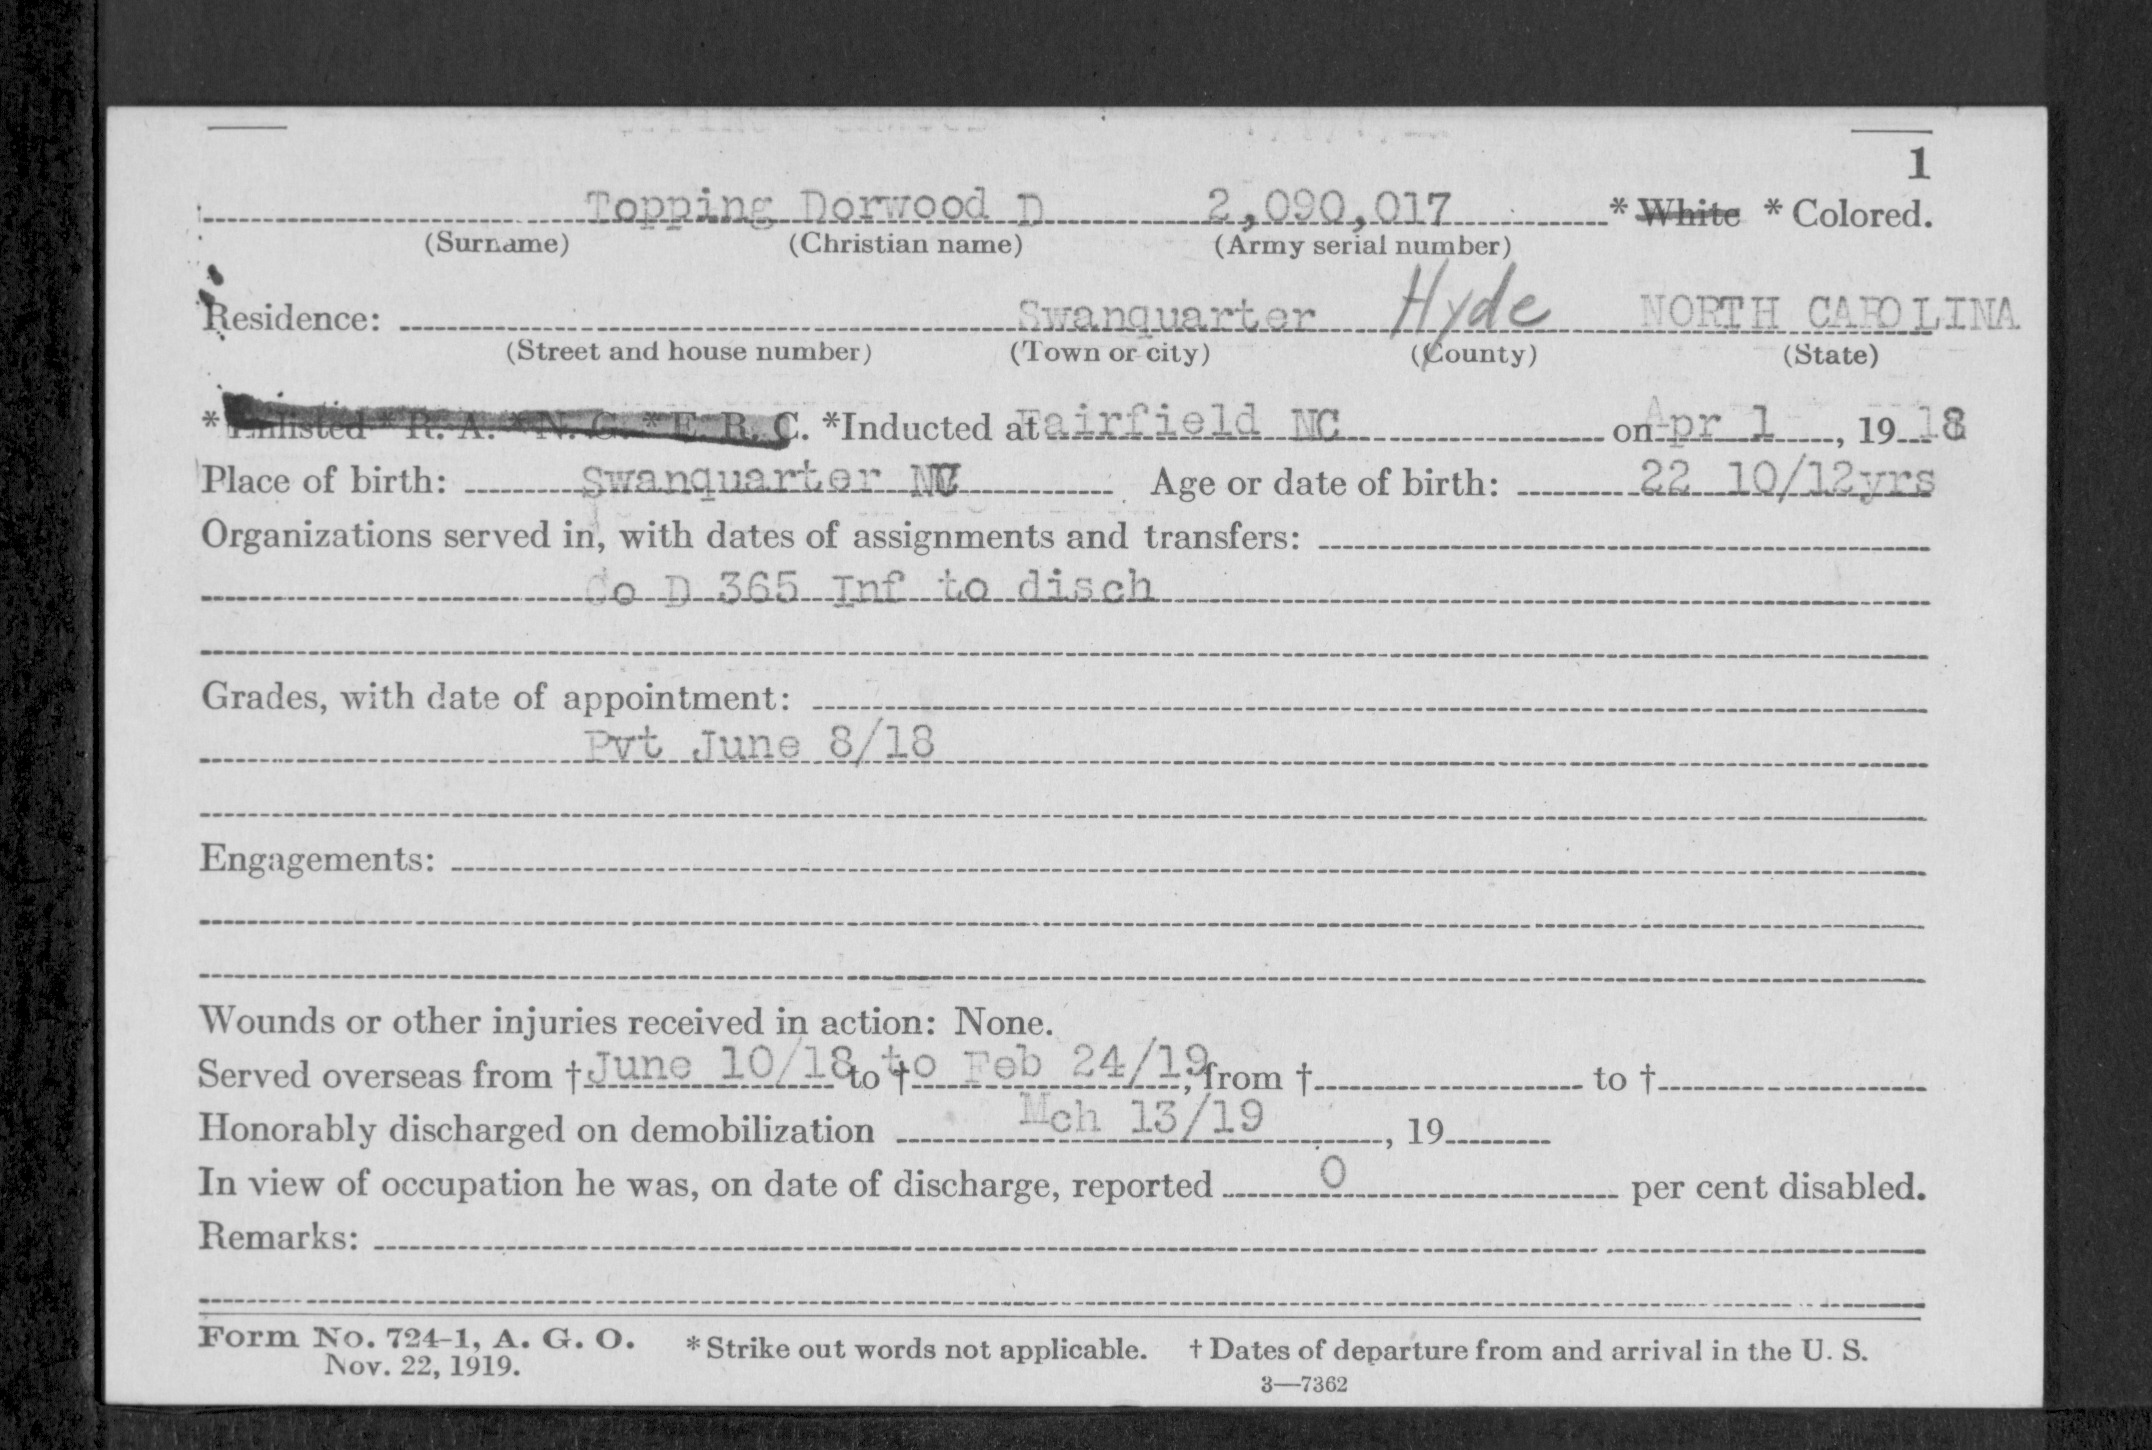 1
Topping Dorwood D 2,090,017 * White * Colored.
(Surname) (Christian name) (Army serial number)
Residence: Swanquarter Hyde NORTH CAROLINA
(Street and house number) (Town or city) (County) (State)
* Enlisted * R. A. * N. G. * E. R. C. *Inducted at Fairfield NC on Apr 1, 19 18
Place of birth: Swanquarter NC Age or date of birth: 22 10/12yrs
Organizations served in, with dates of assignments and transfers:
Co D 365 Inf to disch
Grades, with date of appointment:
Pvt June 8/18
Engagements:
Wounds or other injuries received in action: None.
Served overseas from † June 10/18 to † to Feb 24/19, from † to †
Honorably discharged on demobilization Mch 13/19, 19
In view of occupation he was, on date of discharge, reported 0 per cent disabled.
Remarks:
Form No. 724-1, A. G. O. * Strike out words not applicable. † Dates of departure from and arrival in the U. S.
Nov. 22, 1919.
3—7362